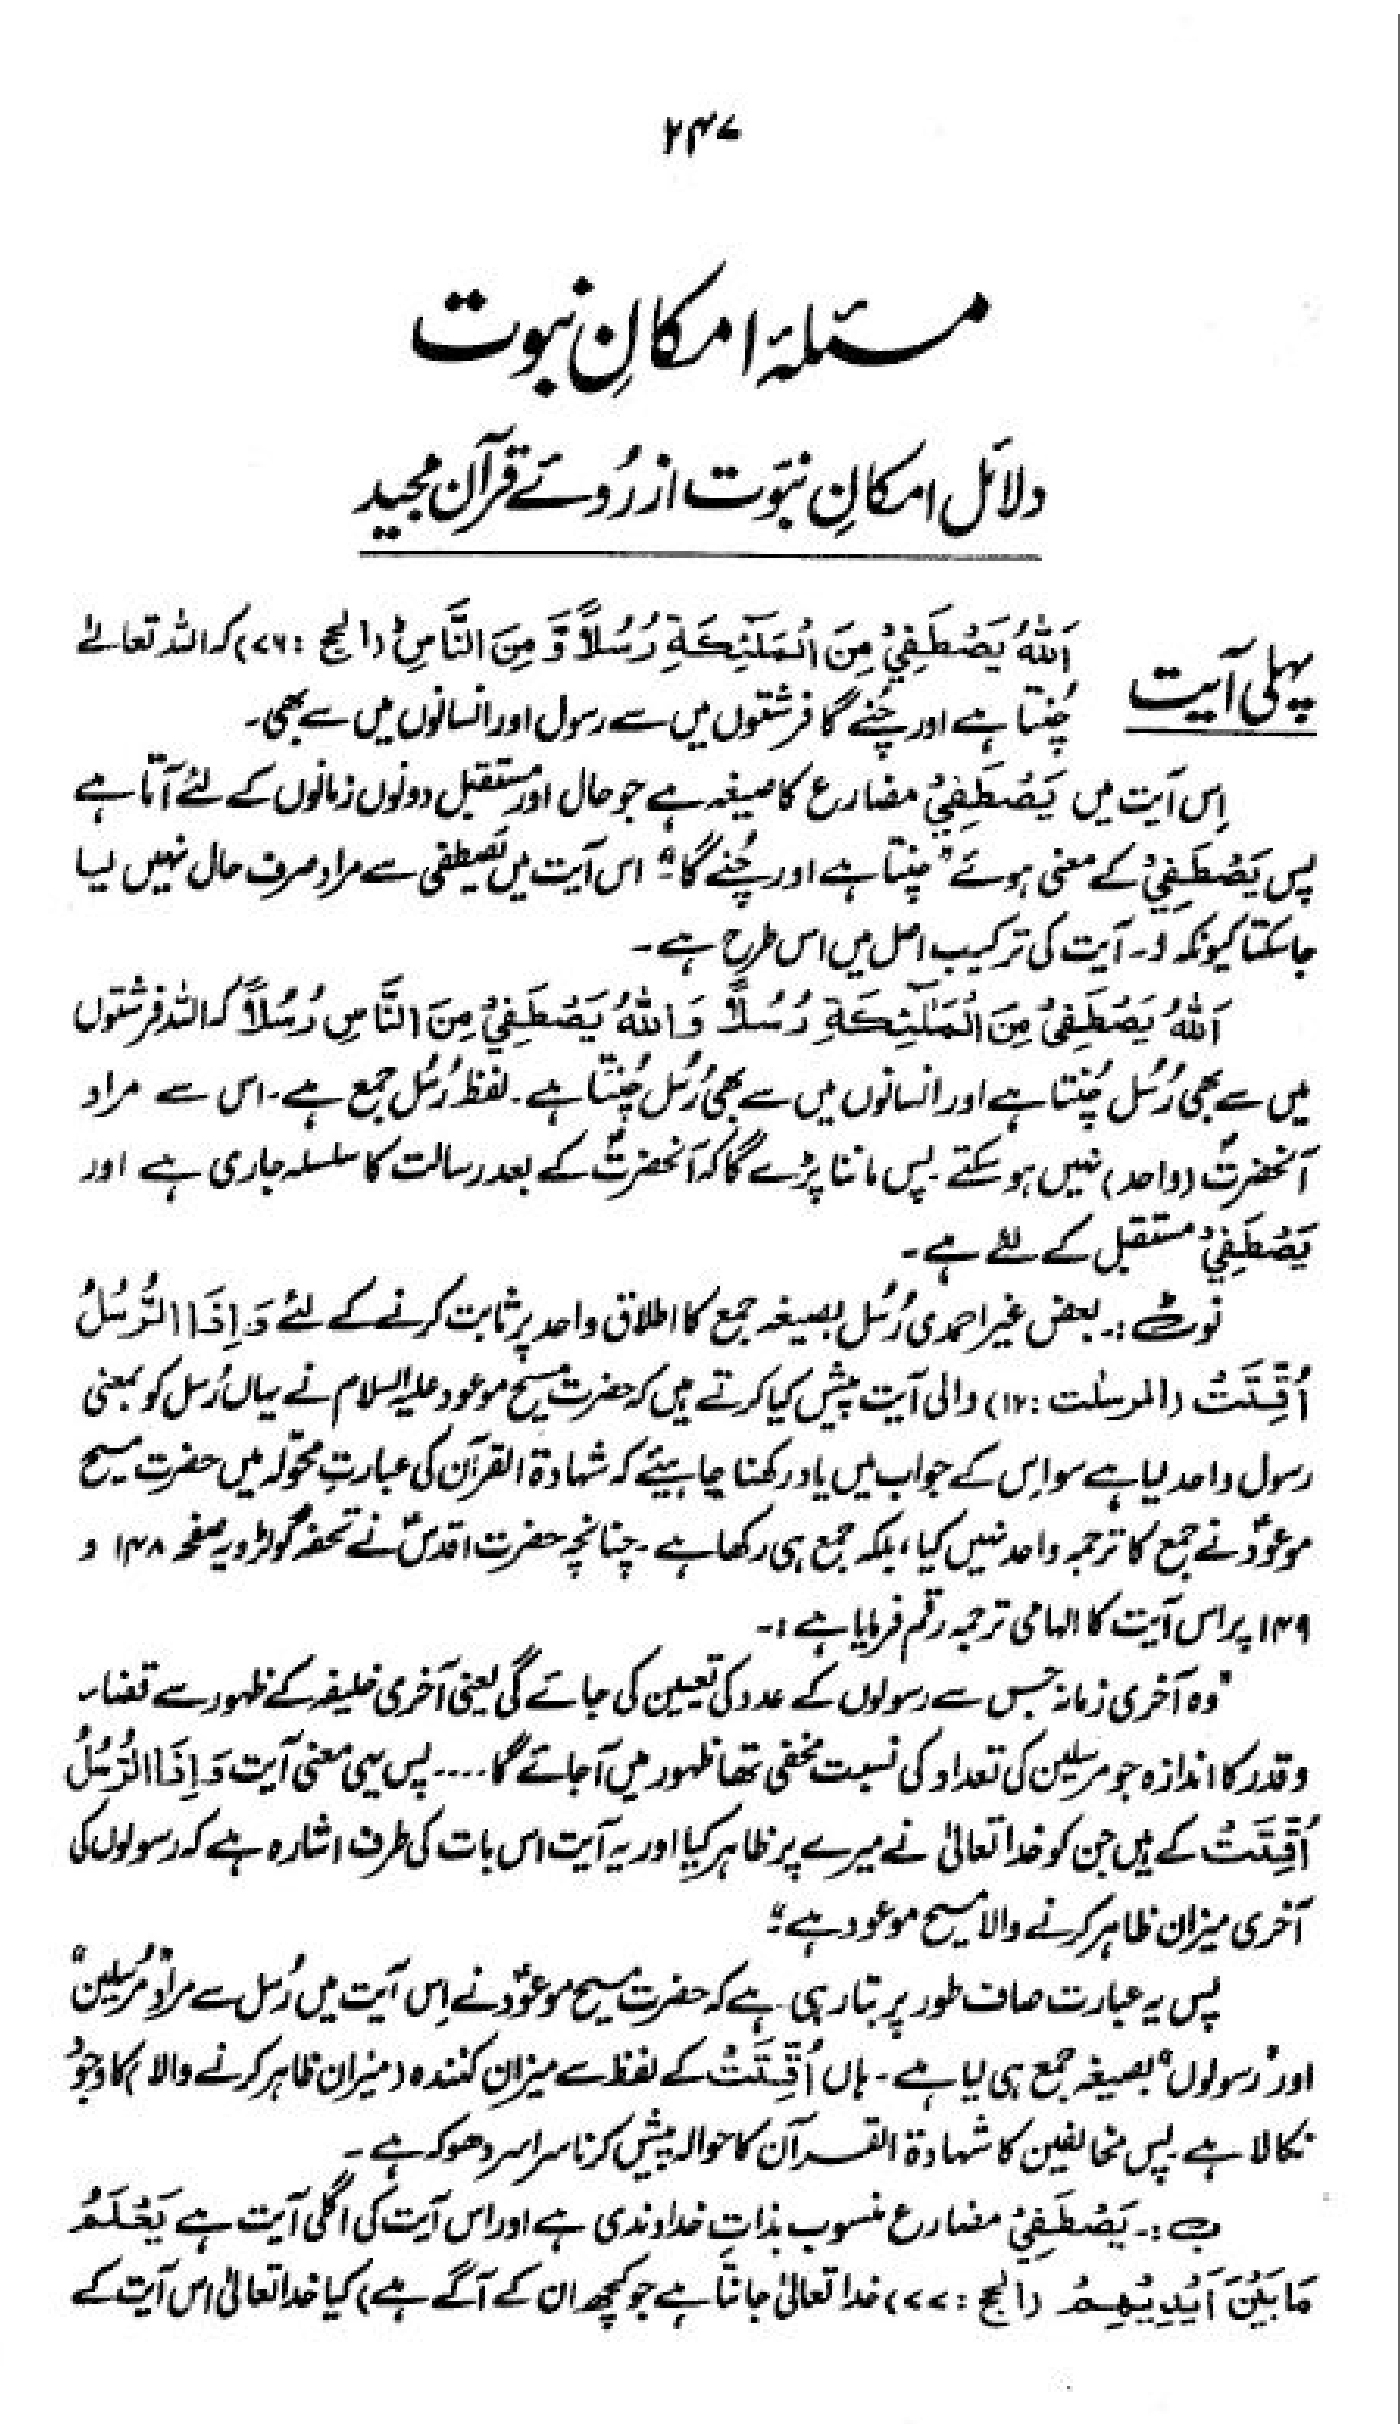 ۲۴۷
مسئلۂ امکانِ نبوت
دلائل امکانِ نبوّت از رُوئے قرآن مجید
پہلی آیت
اَللّٰهُ يَصْطَفِيْ مِنَ الْمَلٰٓئِكَةِ رُسُلًا وَّ مِنَ النَّاسِ (الحج : ۷۶) کہ اللہ تعالےٰ
چُنتا ہے اور چُنے گا فرشتوں میں سے رسول اور انسانوں میں سے بھی۔
اِس آیت میں يَصْطَفِيْ مضارع کا صیغہ ہے جو حال اور مستقبل دونوں زمانوں کے لئے آتا ہے
پس يَصْطَفِيْ کے معنی ہوئے "چنتا ہے اور چُنے گا"۔ اس آیت میں یَصطفی سے مراد صرف حال نہیں لیا
جا سکتا کیونکہ ا۔ آیت کی ترکیب اصل میں اس طرح ہے۔
اَللّٰهُ يَصْطَفِيْ مِنَ الْمَلٰٓئِكَةِ رُسُلًا وَاللّٰهُ يَصْطَفِيْ مِنَ النَّاسِ رُسُلًا کہ اللہ فرشتوں
میں سے بھی رُسُل چُنتا ہے اور انسانوں میں سے بھی رُسُل چُنتا ہے۔ لفظ رُسُل جمع ہے۔ اس سے مراد
آنحضرتؐ (واحد) نہیں ہو سکتے۔ پس ماننا پڑے گا کہ آنحضرتؐ کے بعد رسالت کا سلسلہ جاری ہے اور
يَصْطَفِيْ مستقبل کے لئے ہے۔
نوٹ :۔ بعض غیر احمدی رُسُل بصیغہ جمع کا اطلاق واحد پر ثابت کرنے کے لئے وَاِذَا الرُّسُلُ
اُقِّتَتْ (المرسلٰت : ۱۲) والی آیت پیش کیا کرتے ہیں کہ حضرت مسیح موعود علیہ السلام نے یہاں رُسل کو بمعنی
رسول واحد لیا ہے سو اِس کے جواب میں یاد رکھنا چاہیئے کہ شہادۃ القرآن کی عبارتِ محوّلہ میں حضرت مسیح
موعودؑ نے جمع کا ترجمہ واحد نہیں کیا، بلکہ جمع ہی رکھا ہے۔ چنانچہ حضرت اقدسؑ نے تحفہ گولڑویہ صفحہ ۱۴۸ و
۱۴۹ پر اس آیت کا الہامی ترجمہ رقم فرمایا ہے :۔
"وہ آخری زمانہ جس سے رسولوں کے عدد کی تعیین کی جائے گی یعنی آخری خلیفہ کے ظہور سے قضاء
و قدر کا اندازہ جو مرسلین کی تعداد کی نسبت مخفی تھا ظہور میں آ جائے گا .... پس یہی معنی آیت وَاِذَا الرُّسُلُ
اُقِّتَتْ کے ہیں جن کو خدا تعالیٰ نے میرے پر ظاہر کیا اور یہ آیت اس بات کی طرف اشارہ ہے کہ رسولوں کی
آخری میزان ظاہر کرنے والا مسیح موعود ہے"۔
پس یہ عبارت صاف طور پر بتا رہی ہے کہ حضرت مسیح موعودؑ نے اِس آیت میں رُسل سے مراد "مُرسلین"
اور "رسولوں" بصیغہ جمع ہی لیا ہے۔ ہاں اُقِّتَتْ کے لفظ سے میزان کنندہ (میزان ظاہر کرنے والا) کا وجُود
نکالا ہے۔ پس مخالفین کا شہادۃ القرآن کا حوالہ پیش کرنا سراسر دھوکہ ہے۔
ب :۔ يَصْطَفِيْ مضارع منسوب بذاتِ خداوندی ہے اور اس آیت کی اگلی آیت ہے يَعْلَمُ
مَا بَيْنَ اَيْدِيْهِمْ (الحج : ۷۷) خدا تعالیٰ جانتا ہے جو کچھ ان کے آگے ہے) کیا خدا تعالیٰ اس آیت کے